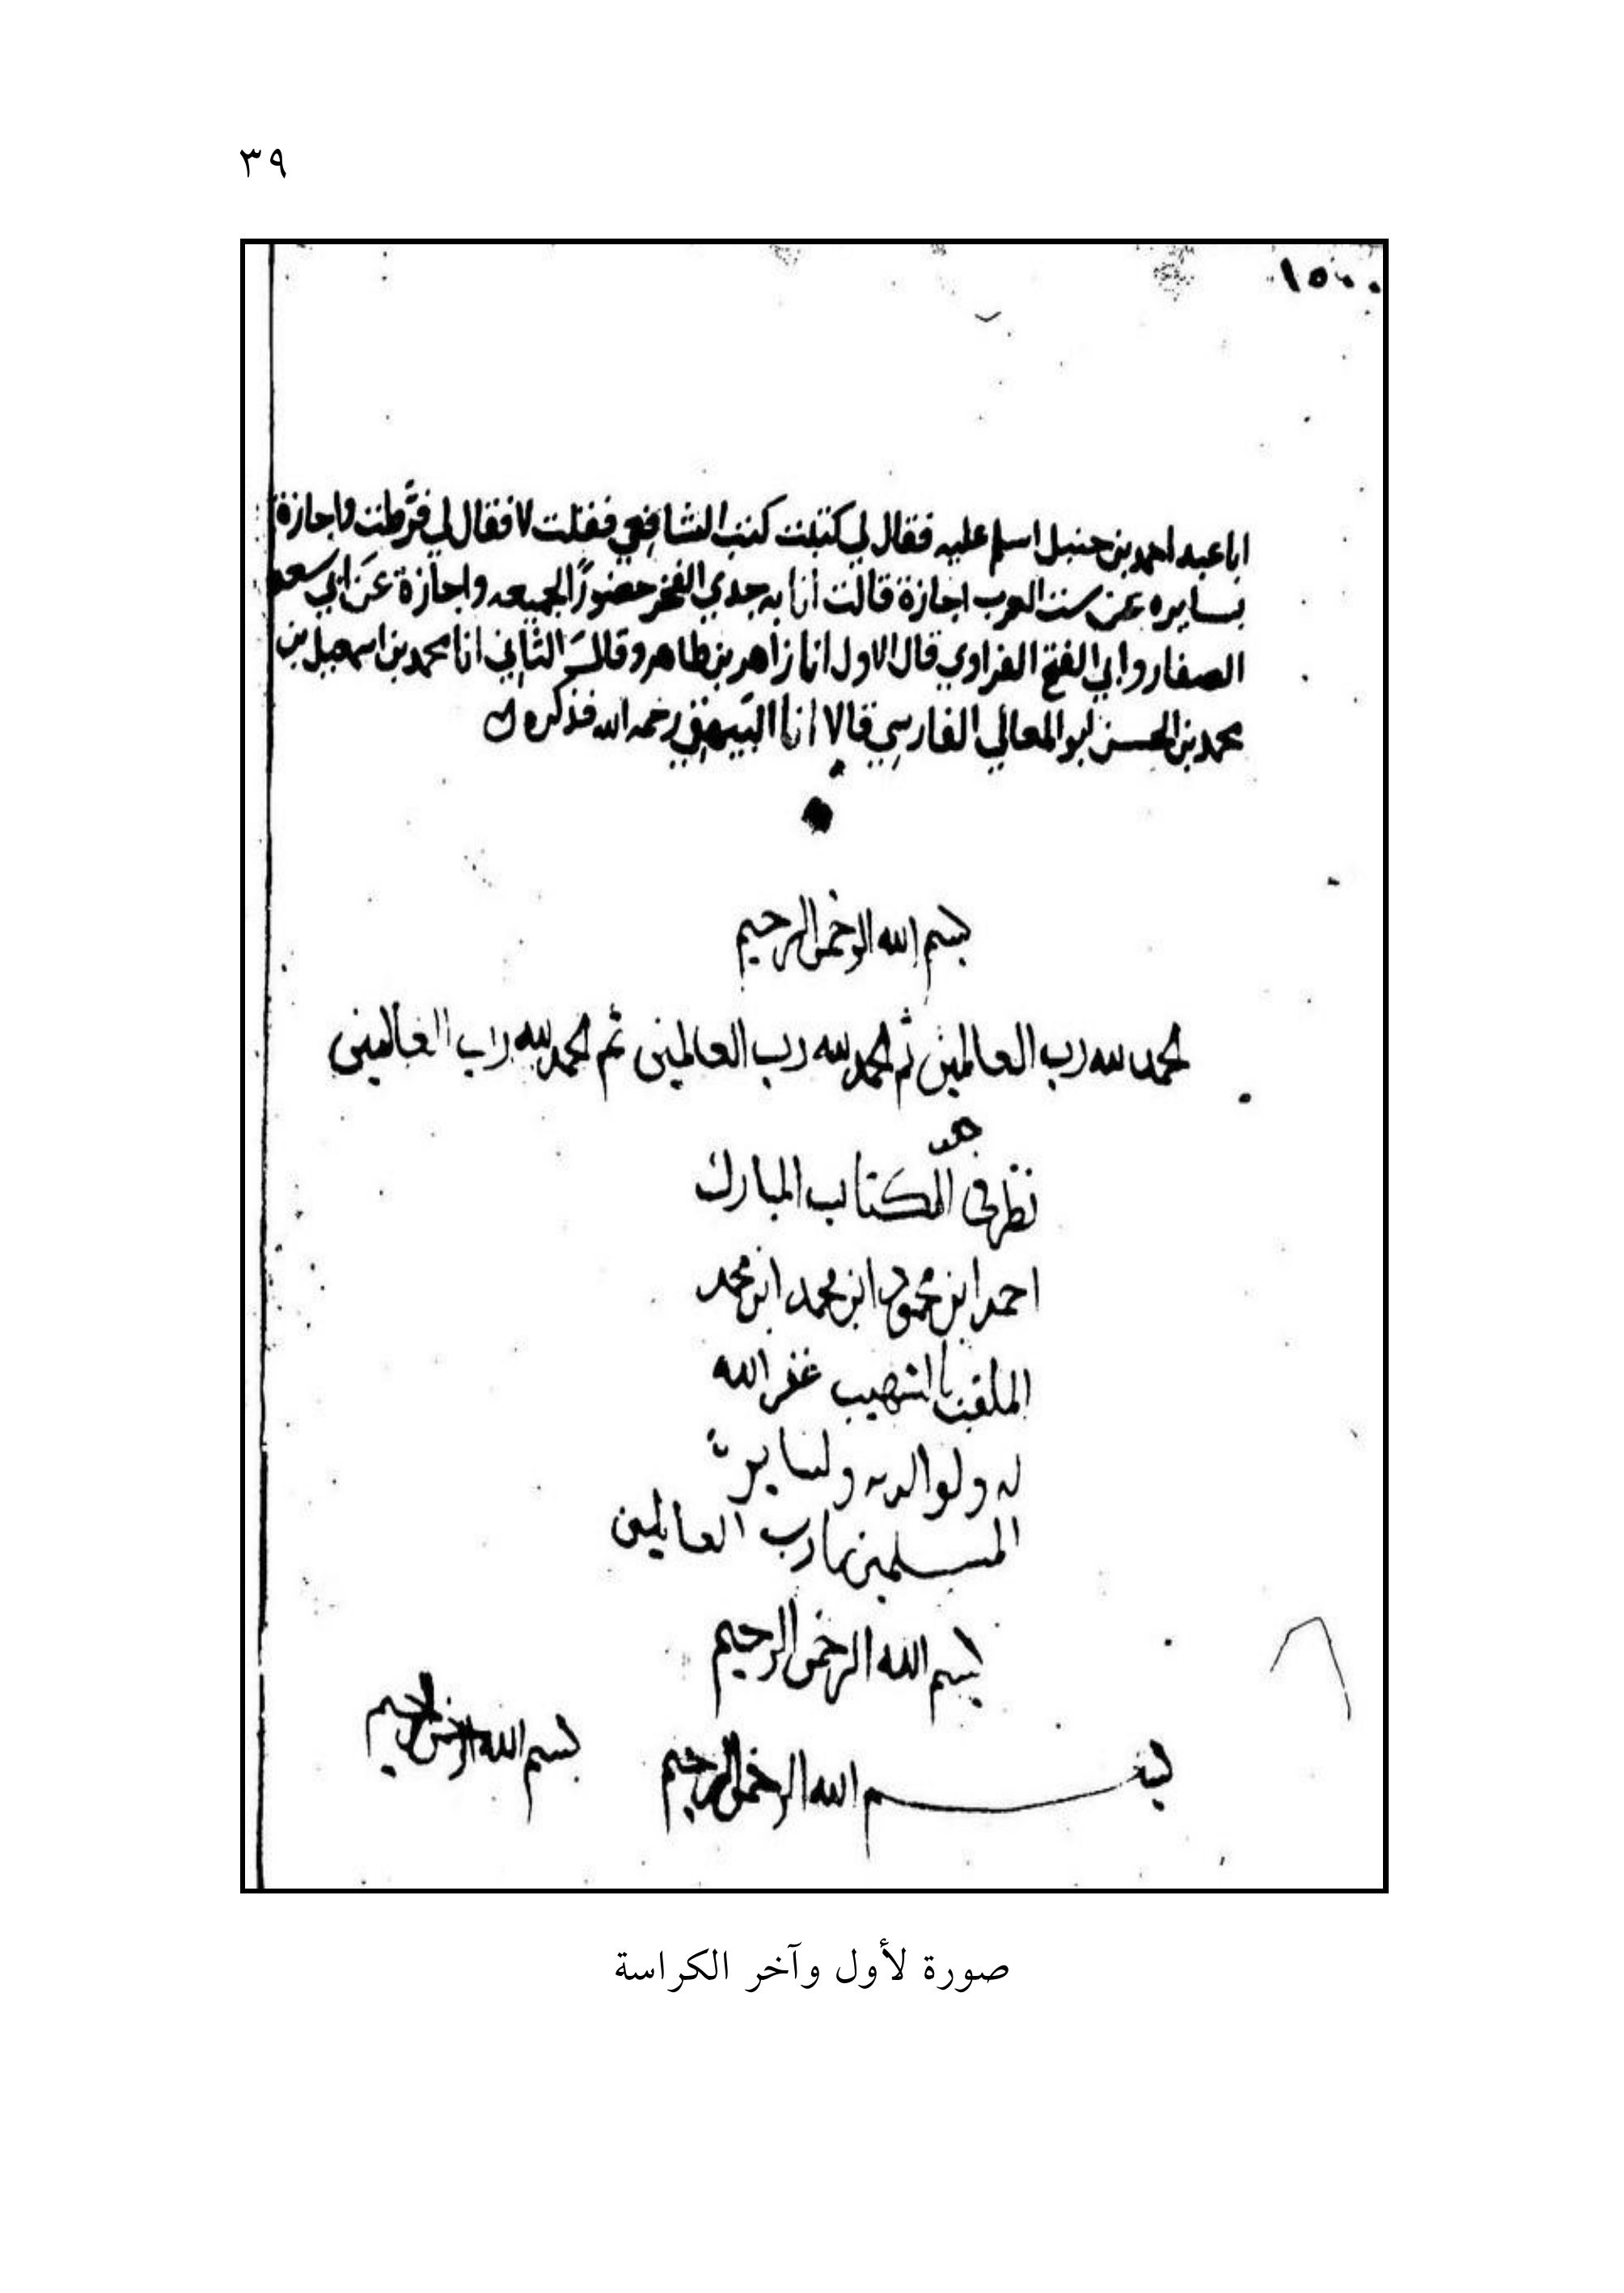 ٣٩
١٥٠٠
ابا عبد احمد بن حنبل اسلم عليه فقال لي كتبت كتب الشافعي فقلت لا فقال لي فرَّطت واجازة
بسايره عن ست العرب اجازة قالت انا به جدي الفخر حضورًا لجميعه واجازة عن ابي سعد
الصفار وابي الفتح الفراوي قال الاول انا زاهر بن طاهر وقال الثاني انا محمد بن اسمعيل بن
محمد بن الحسن ابو المعالي الفارسي قالا انا البيهقي رحمه الله فذكره
بسم الله الرحمن الرحيم
الحمد لله رب العالمين ثم الحمد لله رب العالمين ثم الحمد لله رب العالمين
نظر في الكتاب المبارك
احمد ابن محمود ابن محمد ابن محمد
الملقب بالشهيب غفر الله
له ولوالديه ولساير
المسلمين يا رب العالمين
بسم الله الرحمن الرحيم
بسم الله الرحمن الرحيم
بسم الله الرحمن الرحيم
صورة لأول وآخر الكراسة